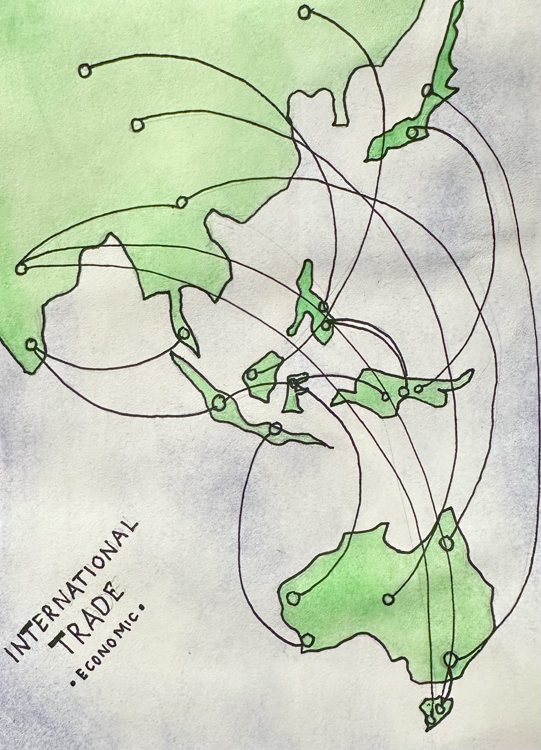 INTERNATIONAL
TRADE
• ECONOMIC •